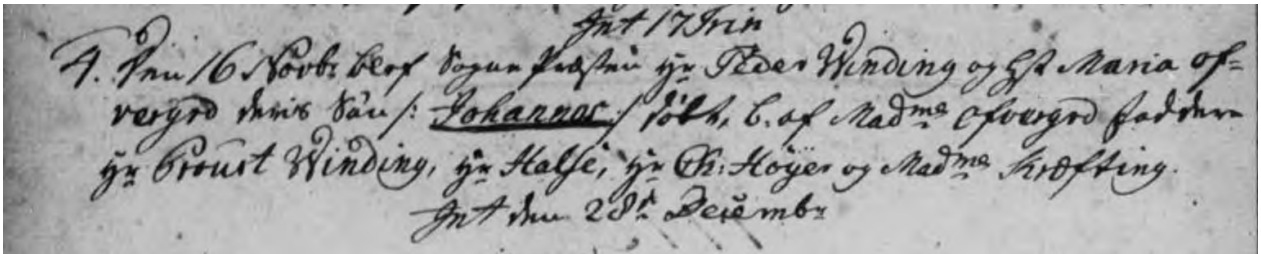 Int 17 Trin
4. Den 16 Novbr blef Sogne Præsten Hr Peder Winding og Hst Maria of=
vergrd deris Sön /: Johannes :/ döbt, b. af Madme ofvergrd faddere
Hr Proust Winding, Hr Halse, Hr Ch: Höyer og Madme Kræfting.
Int den 28de Decembr